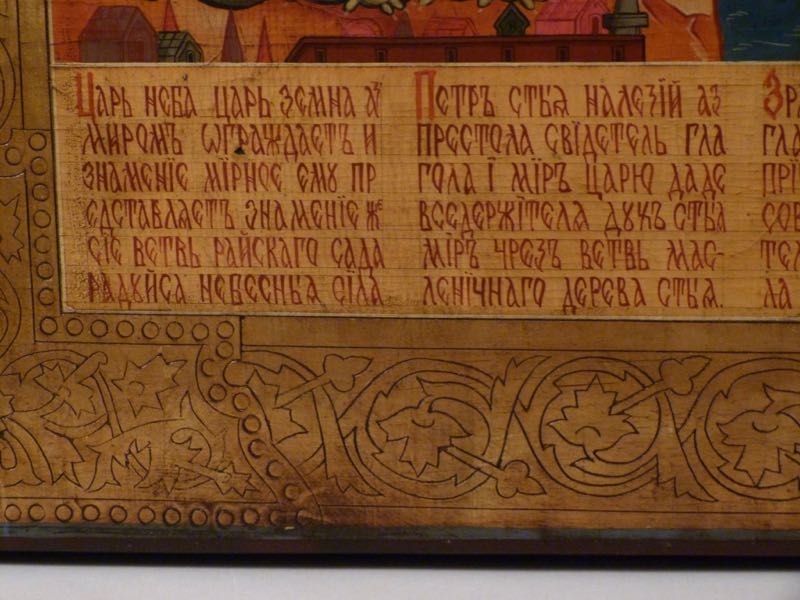 Царь неба царь земна аз
миромъ ѡграждаетъ и
знаменїе мїрное ему пр
едставляетъ знаменїе же
сїе ветвь райскаго сада
радуйса небесныя сїла
Петръ стыя налезїй аз
престола свїдетель гла
гола ї мїръ царю даде
вседержїтеля духъ стыя
мїръ чрезъ ветвь мас-
ленїчнаго дерева стыя.
Зр
гла
прї
сов
тел
ла